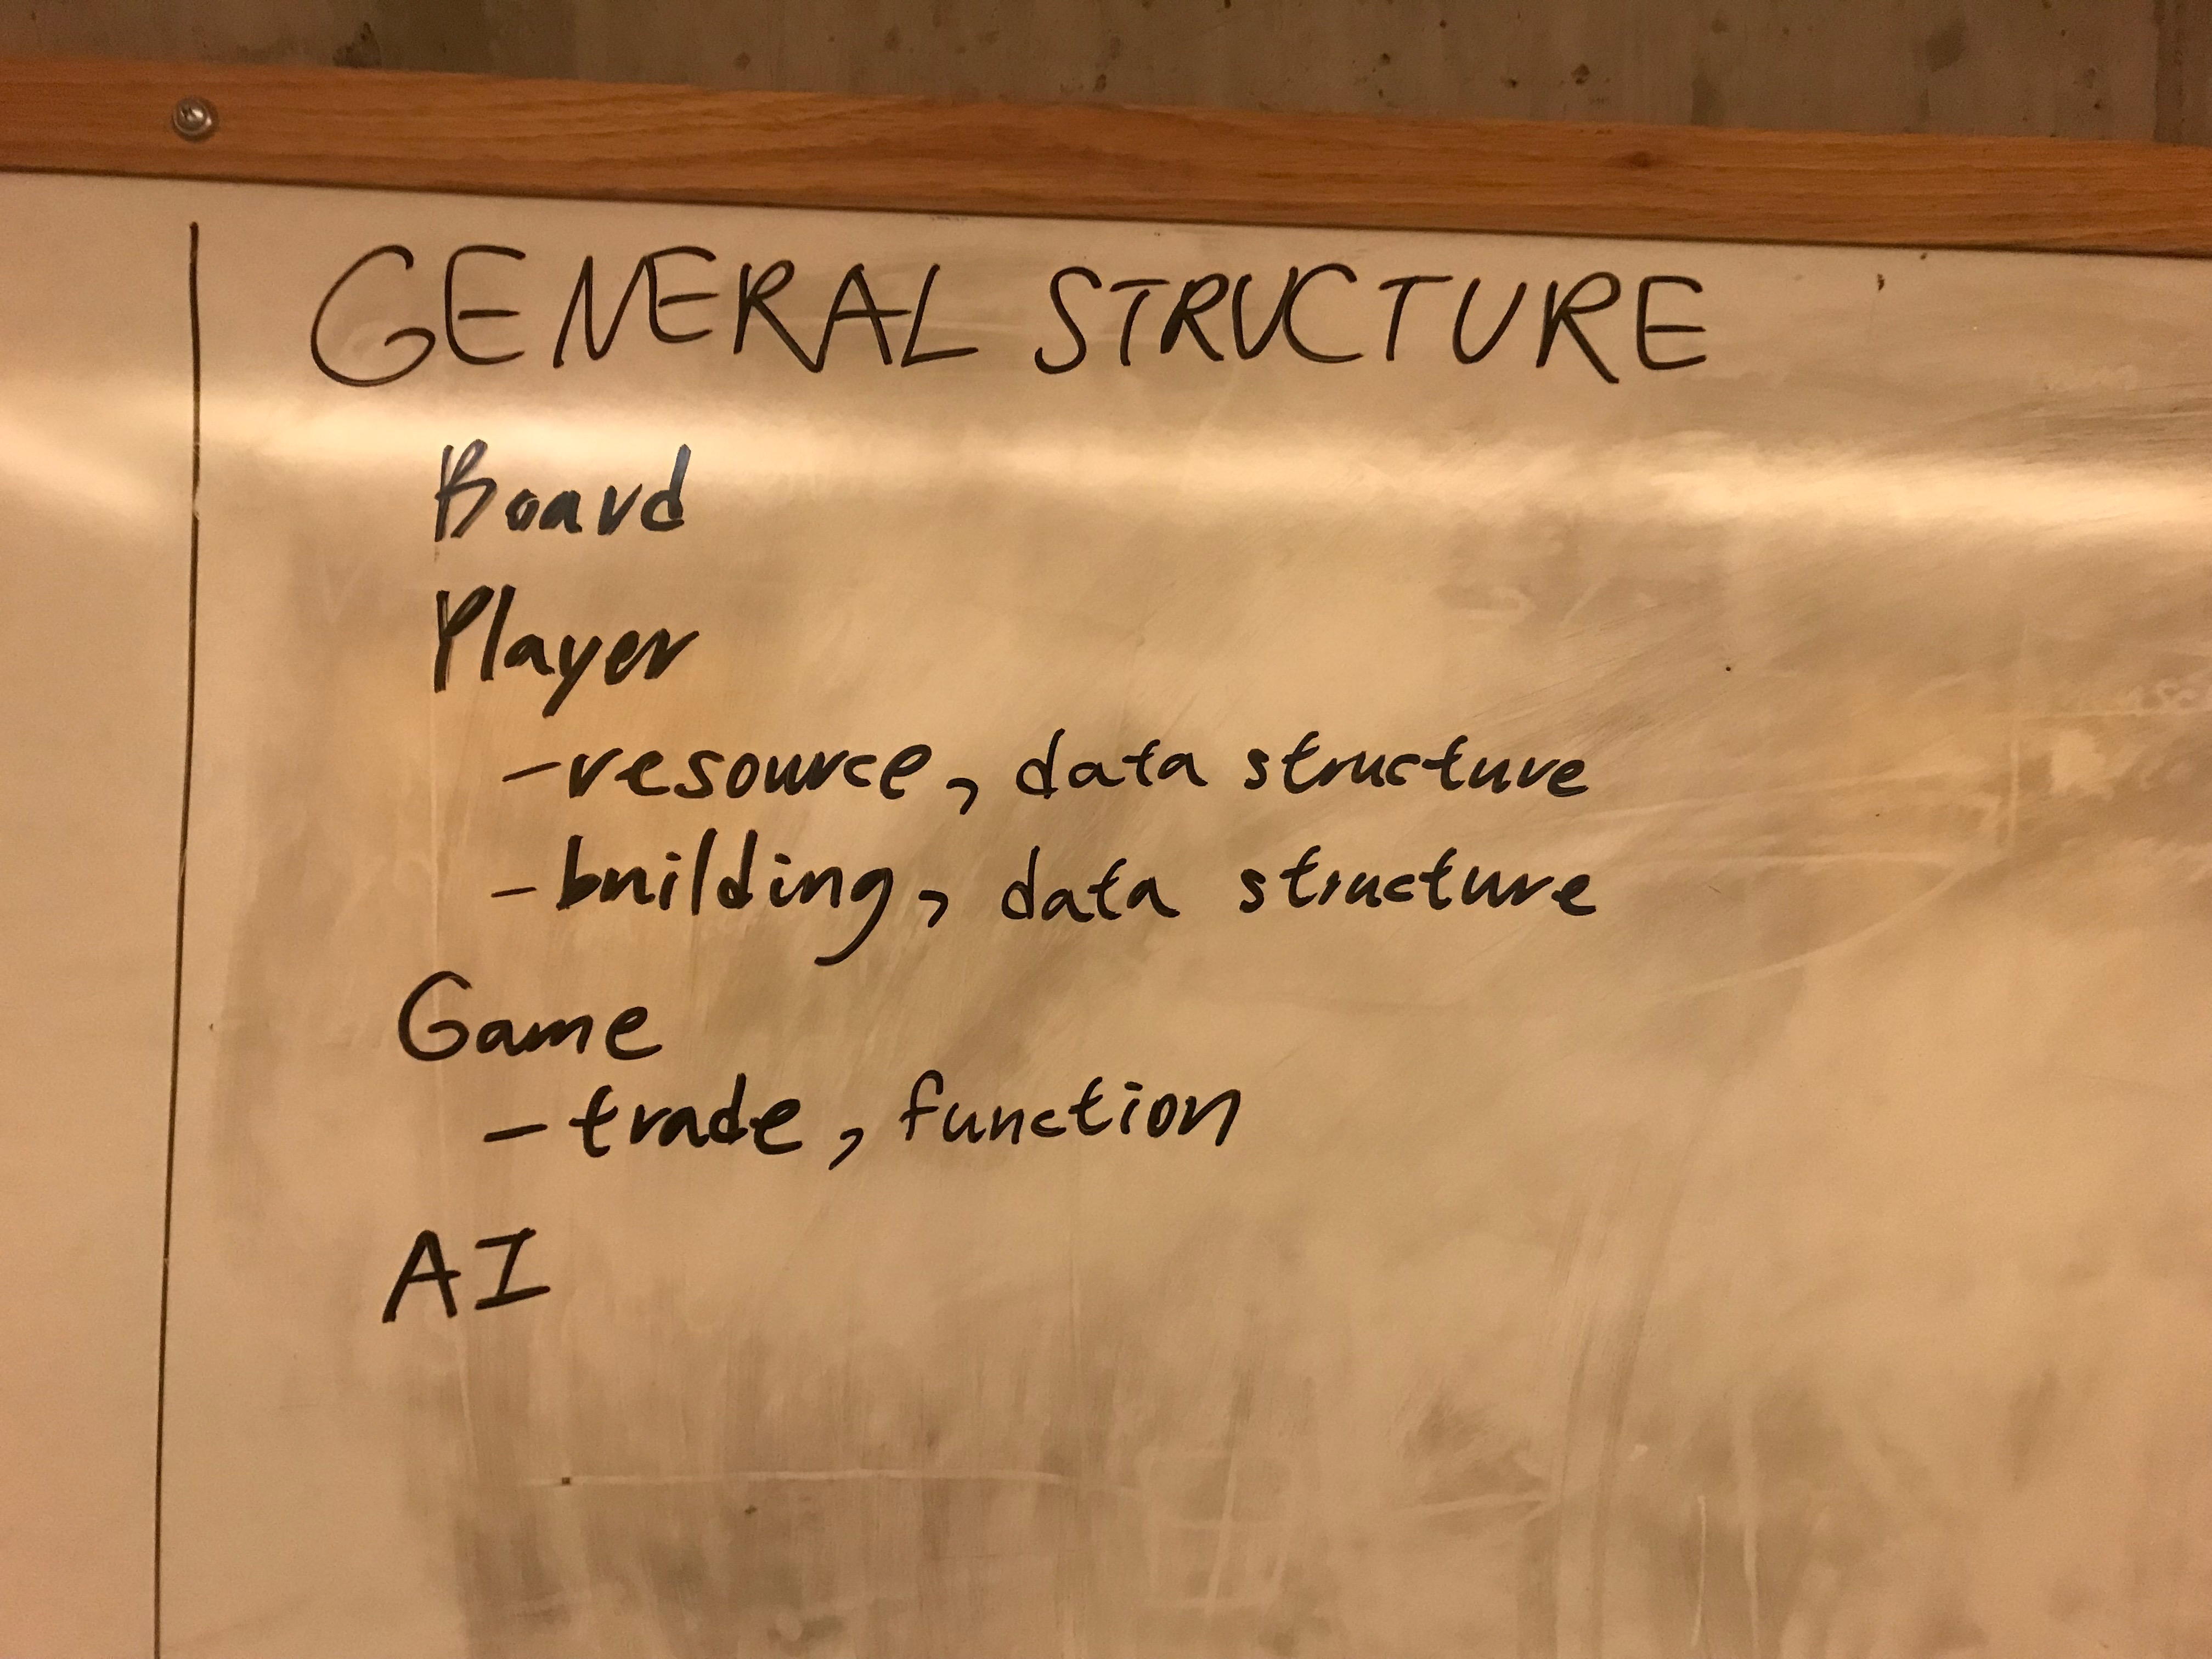 GENERAL STRUCTURE
Board
Player
- resource, data structure
- building, data structure
Game
- trade, function
AI